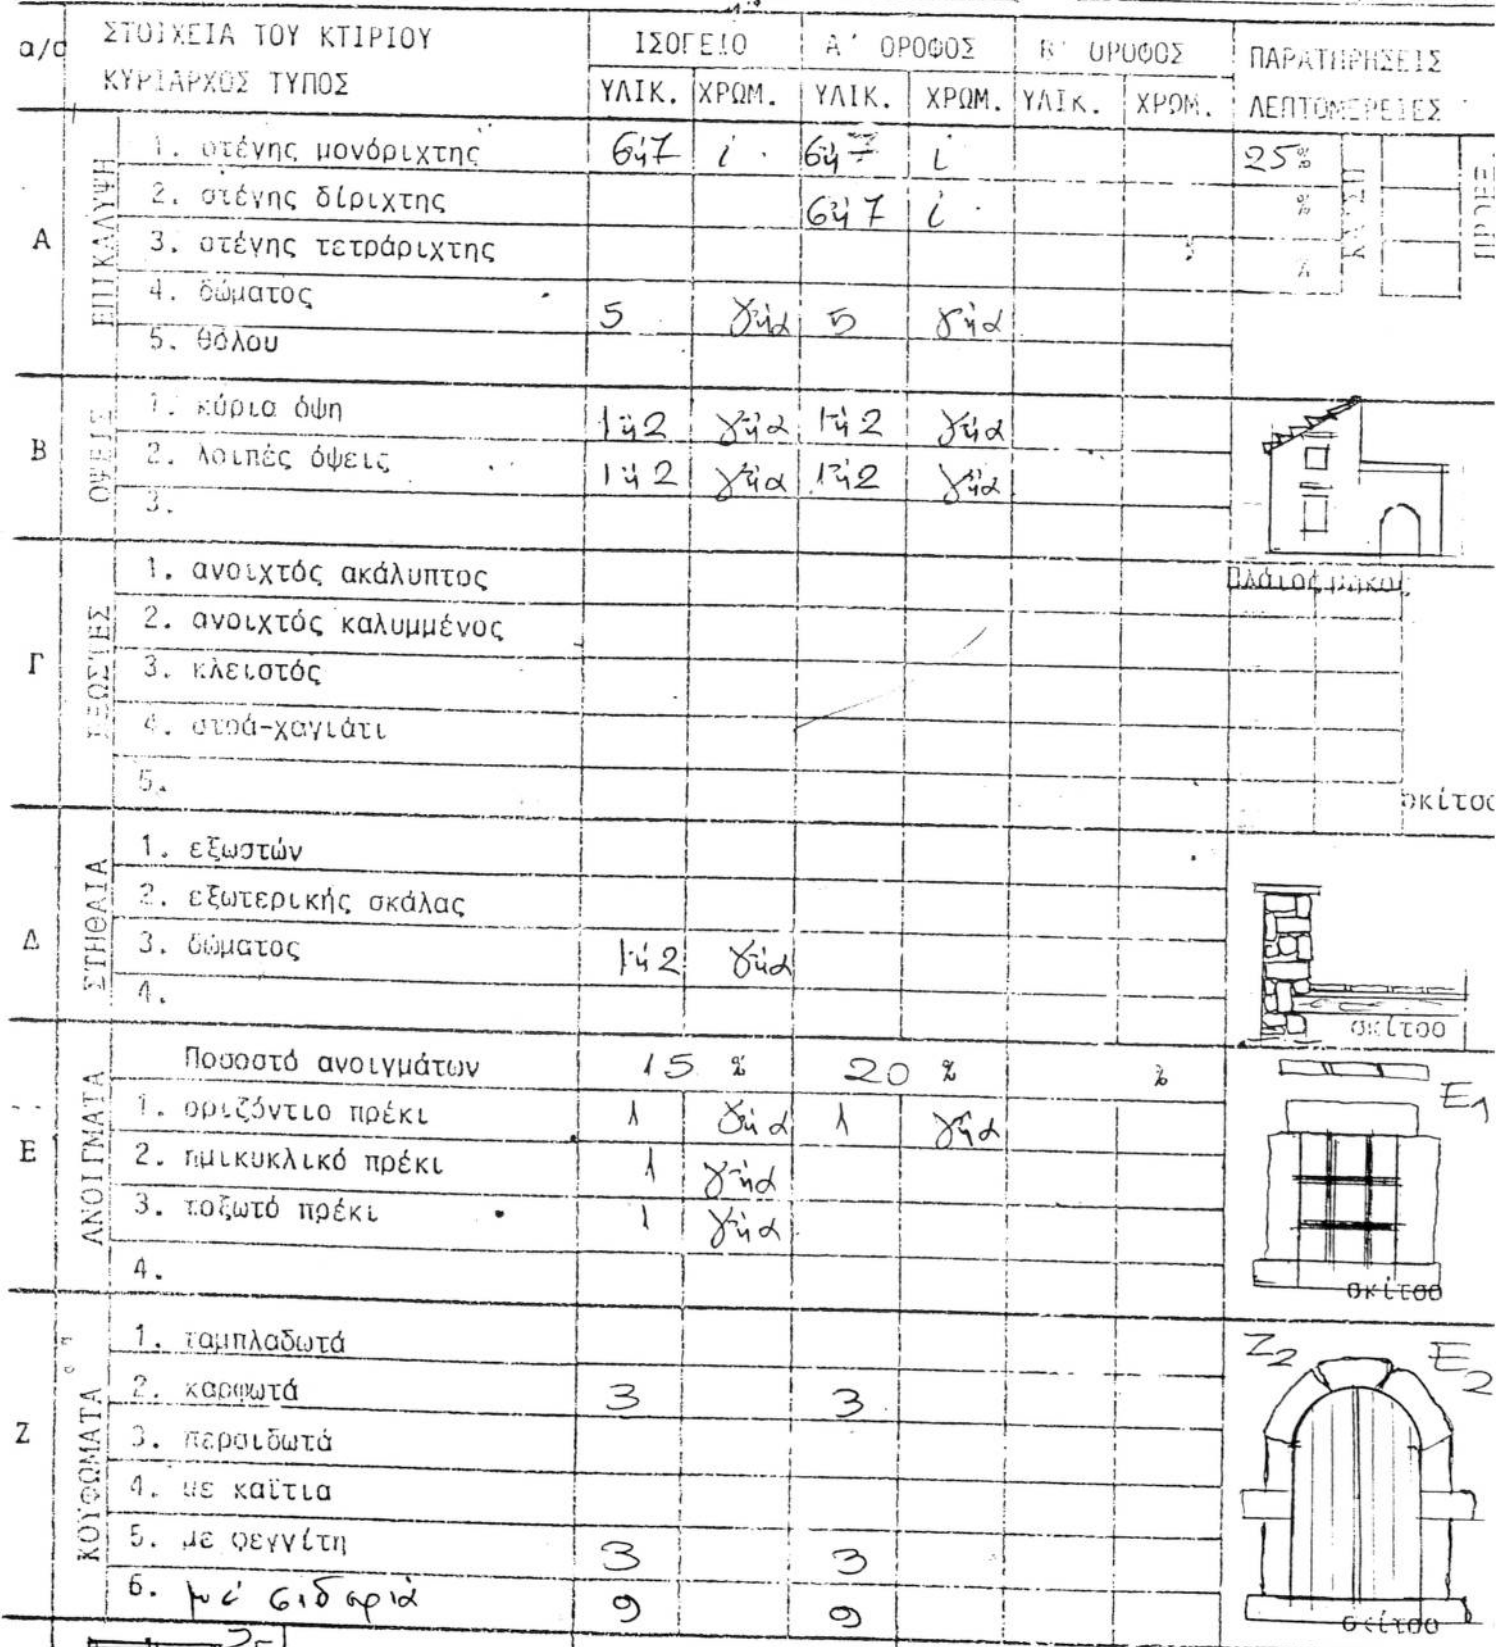 α/α ΣΤΟΙΧΕΙΑ ΤΟΥ ΚΤΙΡΙΟΥ ΙΣΟΓΕΙΟ Α' ΟΡΟΦΟΣ Β' ΟΡΟΦΟΣ ΠΑΡΑΤΗΡΗΣΕΙΣ
ΚΥΡΙΑΡΧΟΣ ΤΥΠΟΣ ΥΛΙΚ. ΧΡΩΜ. ΥΛΙΚ. ΧΡΩΜ. ΥΛΙΚ. ΧΡΩΜ. ΛΕΠΤΟΜΕΡΕΙΕΣ
Α ΕΠΙΚΑΛΥΨΗ
1. στέγης μονόριχτης 6ή7 ί 6ή7 ί 25%
2. στέγης δίριχτης 6ή7 ί %
3. στέγης τετράριχτης %
4. δώματος 5 γήα 5 γήα
5. θόλου
Β ΟΨΕΙΣ
1. κύρια όψη 1ή2 γήα 1ή2 γήα
2. λοιπές όψεις 1ή2 γήα 1ή2 γήα
3.
Γ ΕΞΩΣΤΕΣ
πλάτος μήκος
1. ανοιχτός ακάλυπτος
2. ανοιχτός καλυμμένος
3. κλειστός
4. στοά-χαγιάτι
5.
σκίτσο
Δ ΣΤΗΘΑΙΑ
1. εξωστών
2. εξωτερικής σκάλας
3. δώματος 1ή2 γήα
4.
σκίτσο
Ε ΑΝΟΙΓΜΑΤΑ
Ποσοστό ανοιγμάτων 15 % 20 % %
1. οριζόντιο πρέκι 1 γήα 1 γήα Ε1
2. ημικυκλικό πρέκι 1 γήα
3. τοξωτό πρέκι 1 γήα
4.
σκίτσο
Ζ ΚΟΥΦΩΜΑΤΑ
1. ταμπλαδωτά Ζ2 Ε2
2. καρφωτά 3 3
3. περσιδωτά
4. με καΐτια
5. με φεγγίτη 3 3
6. μέ σιδαριά 9 9
σκίτσο